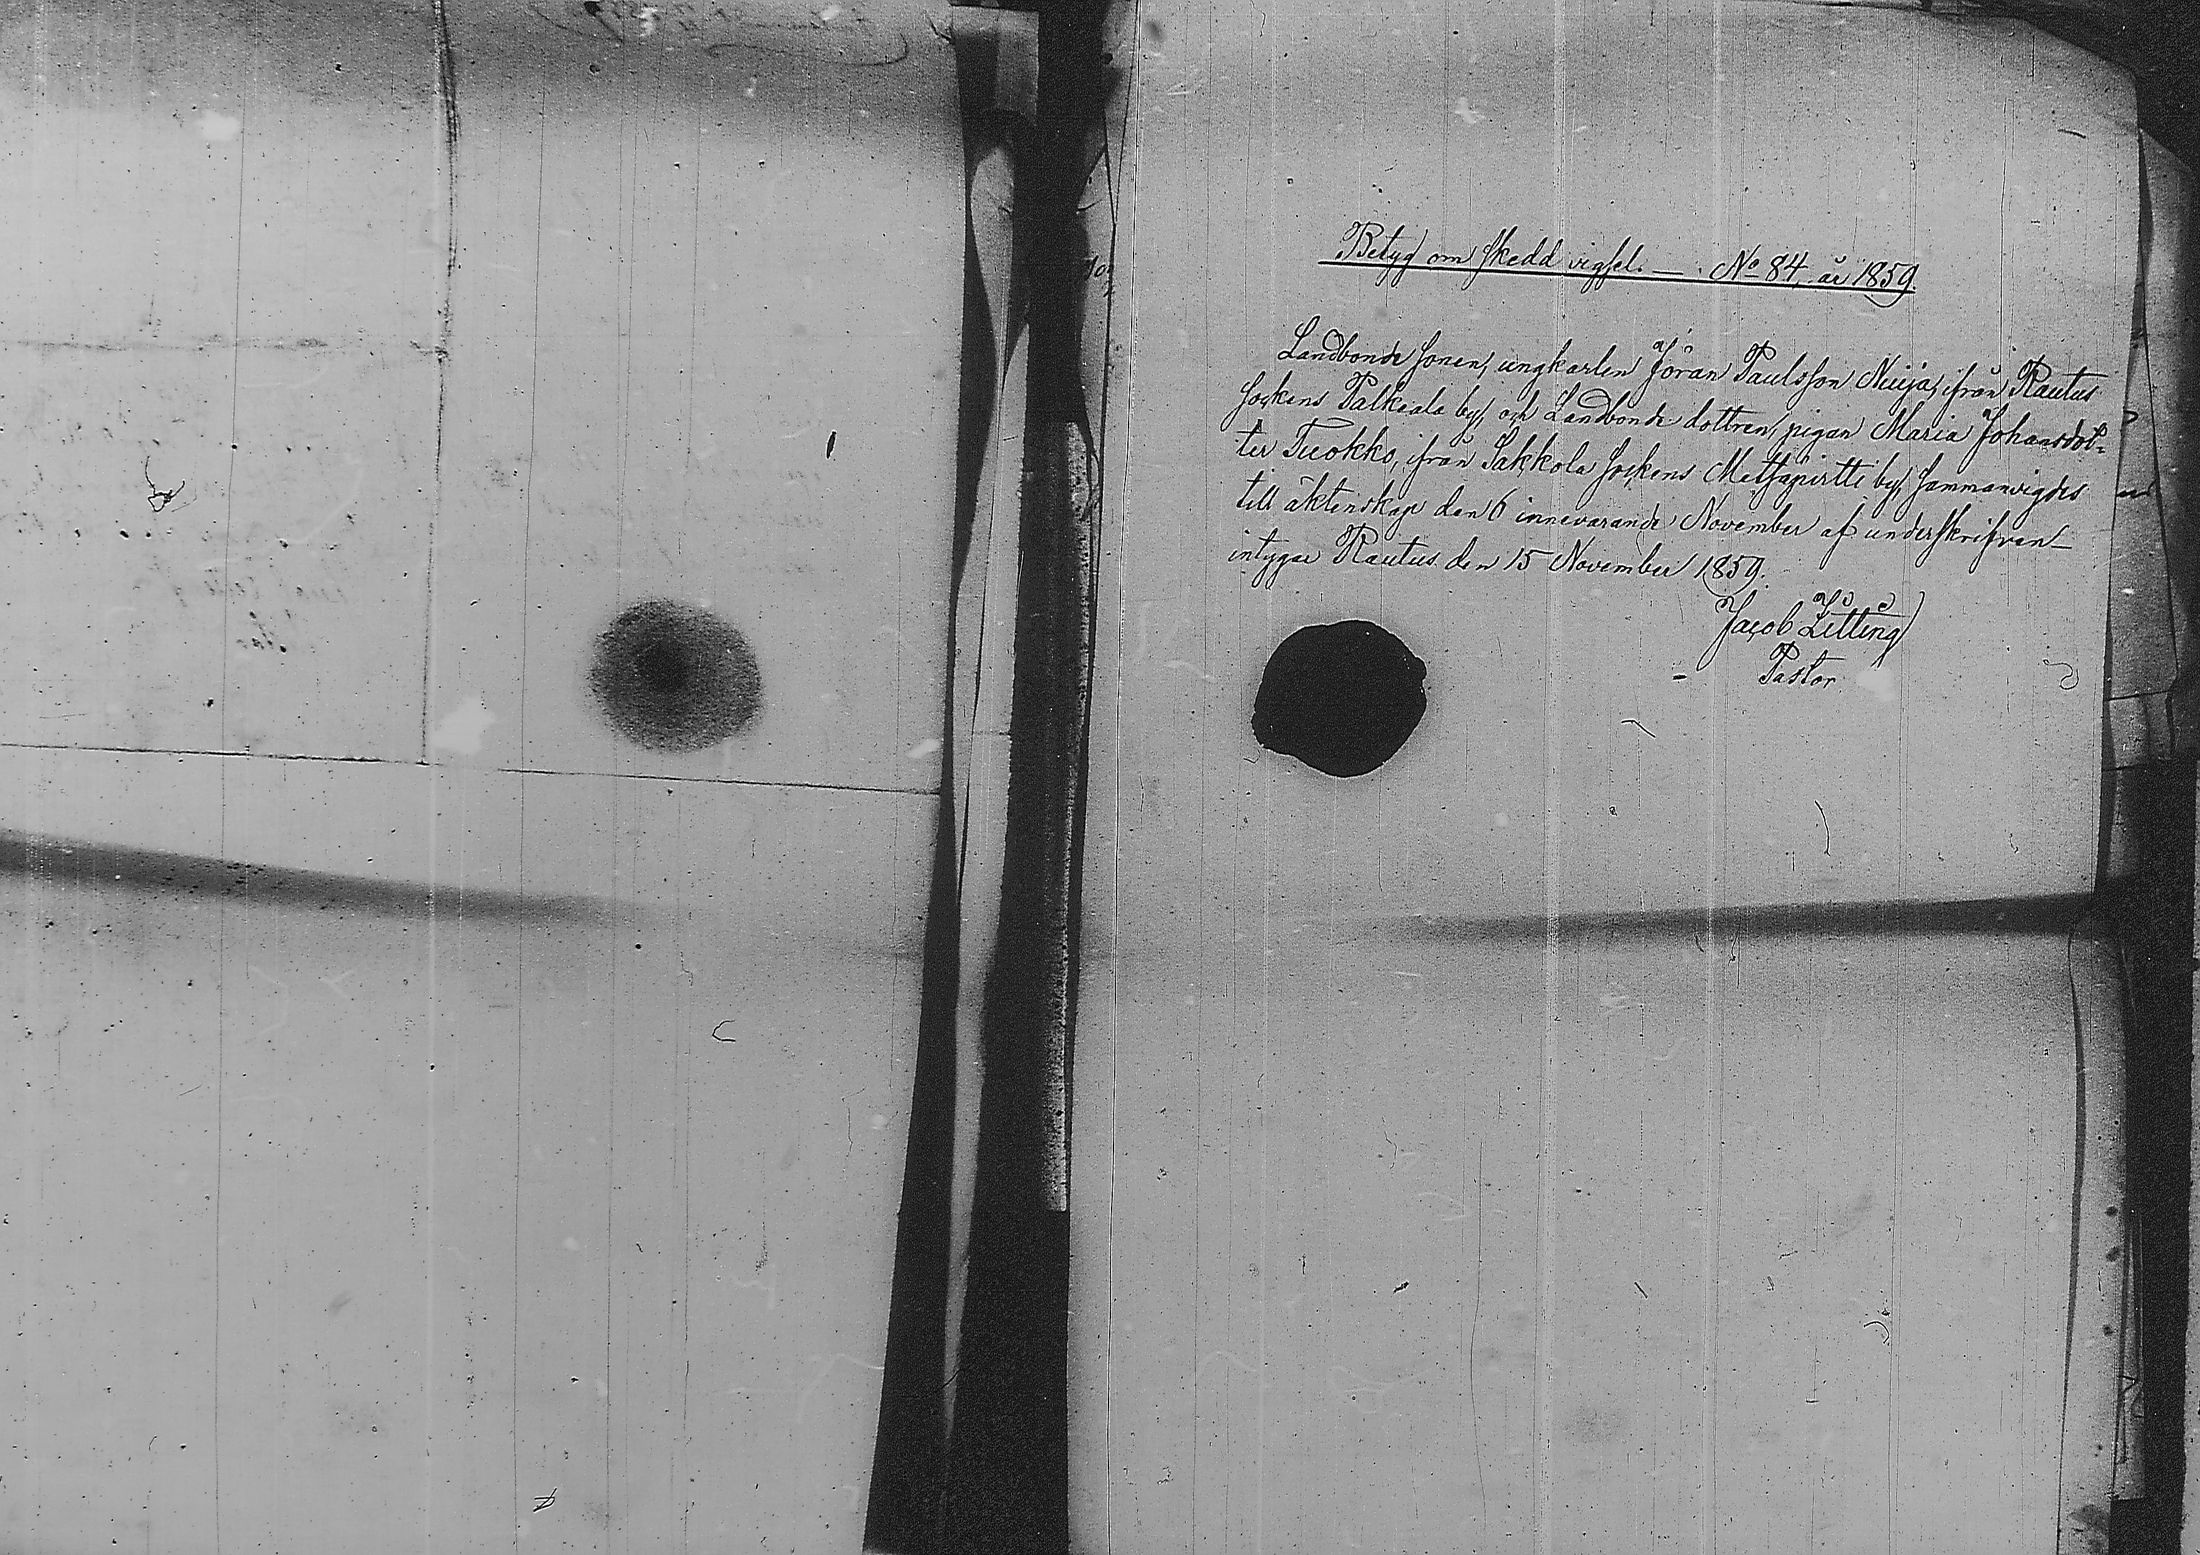 Betyg om skedd vigsel. — . No 84, år 1859.
Landbonde sonen, ungkarlen Jöran Paulsson Nuija, ifrån Rautus
sockens Palkeala by, och Landbonde dottren, pigan Maria Johansdot-
ter Tuokko, ifrån Sakkola sockens Metsäpirtti by, sammanvigdes
till äktenskap den 6 innevarande November af underskrifvan-
intygar Rautus den 15 November 1859.
Jacob Litting
Pastor